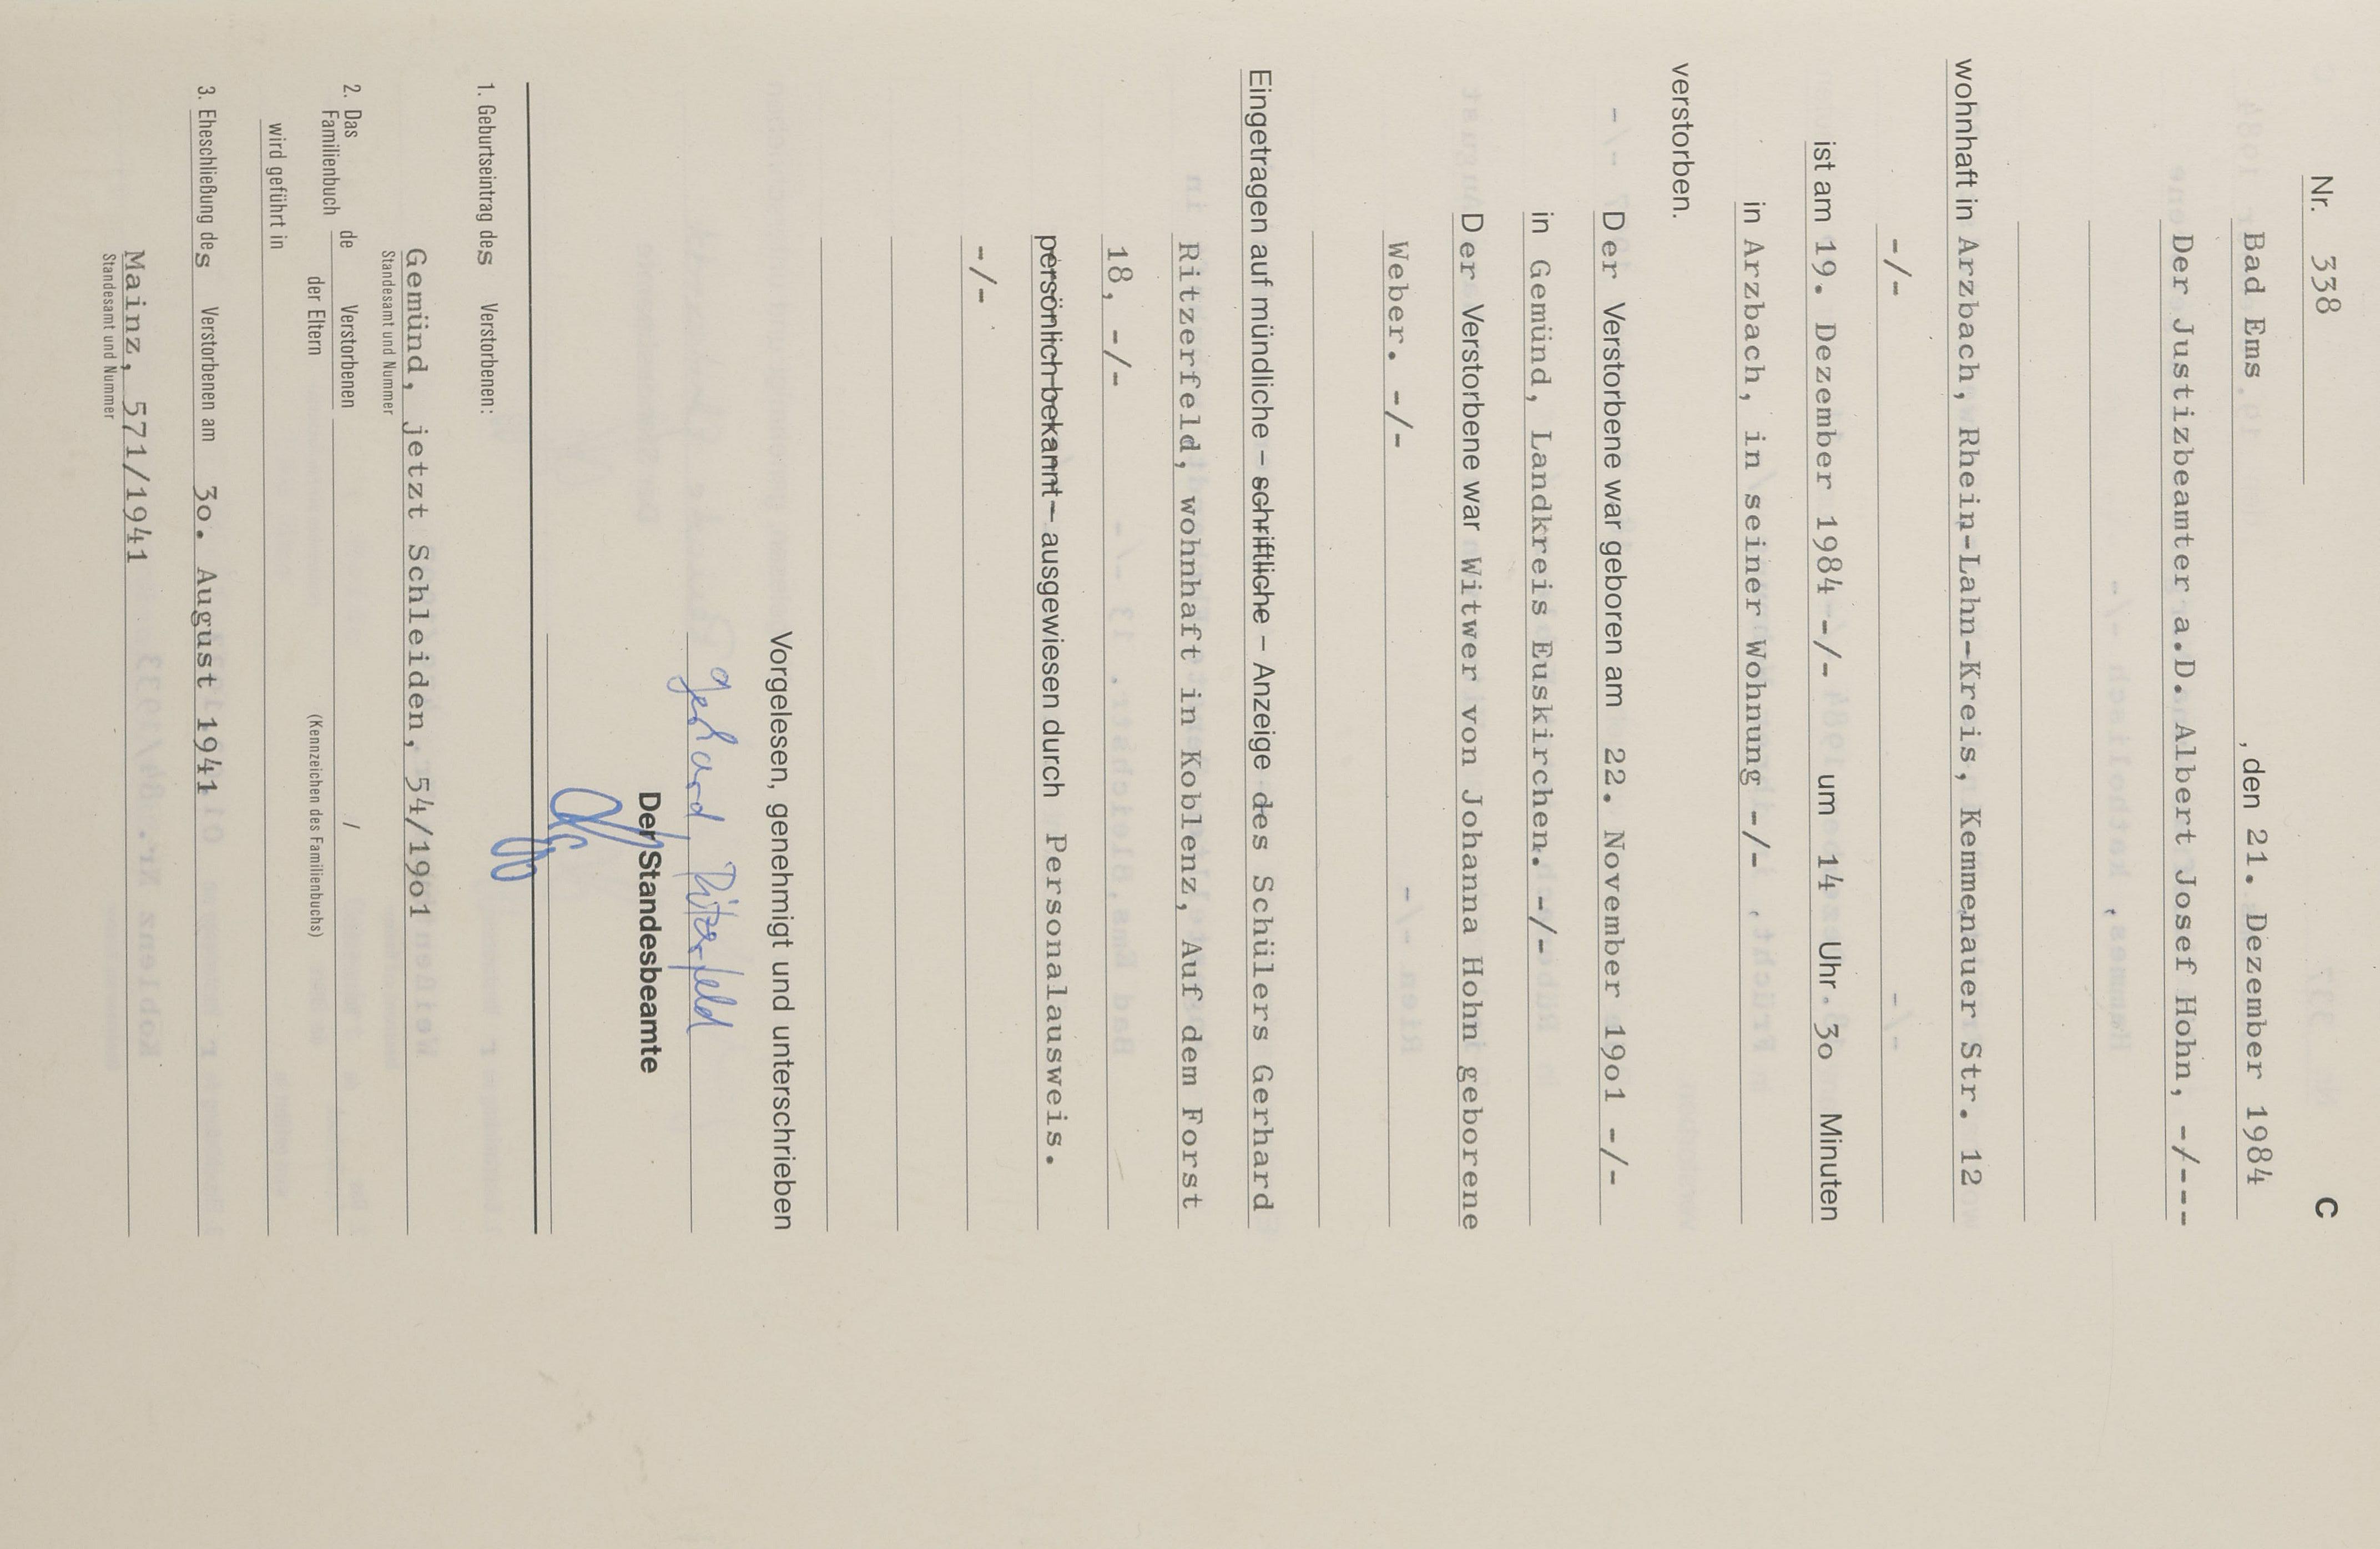 C
Nr. 338
Bad Ems, den 21. Dezember 1984
Der Justizbeamter a.D. Albert Josef Hohn, -/---
wohnhaft in Arzbach, Rhein-Lahn-Kreis, Kemmenauer Str. 12
-/-
ist am 19. Dezember 1984 -/- um 14 Uhr 3o Minuten
in Arzbach, in seiner Wohnung -/-
verstorben.
Der Verstorbene war geboren am 22. November 19o1 -/-
in Gemünd, Landkreis Euskirchen. -/-
Der Verstorbene war Witwer von Johanna Hohn geborene
Weber. -/-
Eingetragen auf mündliche – schriftliche – Anzeige des Schülers Gerhard
Ritzerfeld, wohnhaft in Koblenz, Auf dem Forst
18, -/-
persönlich bekannt – ausgewiesen durch Personalausweis.
-/-
Vorgelesen, genehmigt und unterschrieben
Gerhard Ritzerfeld
Der Standesbeamte
1. Geburtseintrag des Verstorbenen:
Gemünd, jetzt Schleiden, 54/19o1
Standesamt und Nummer
2. Das Familienbuch de Verstorbenen /
der Eltern (Kennzeichen des Familienbuchs)
wird geführt in
3. Eheschließung des Verstorbenen am 3o. August 1941
Mainz, 571/1941
Standesamt und Nummer